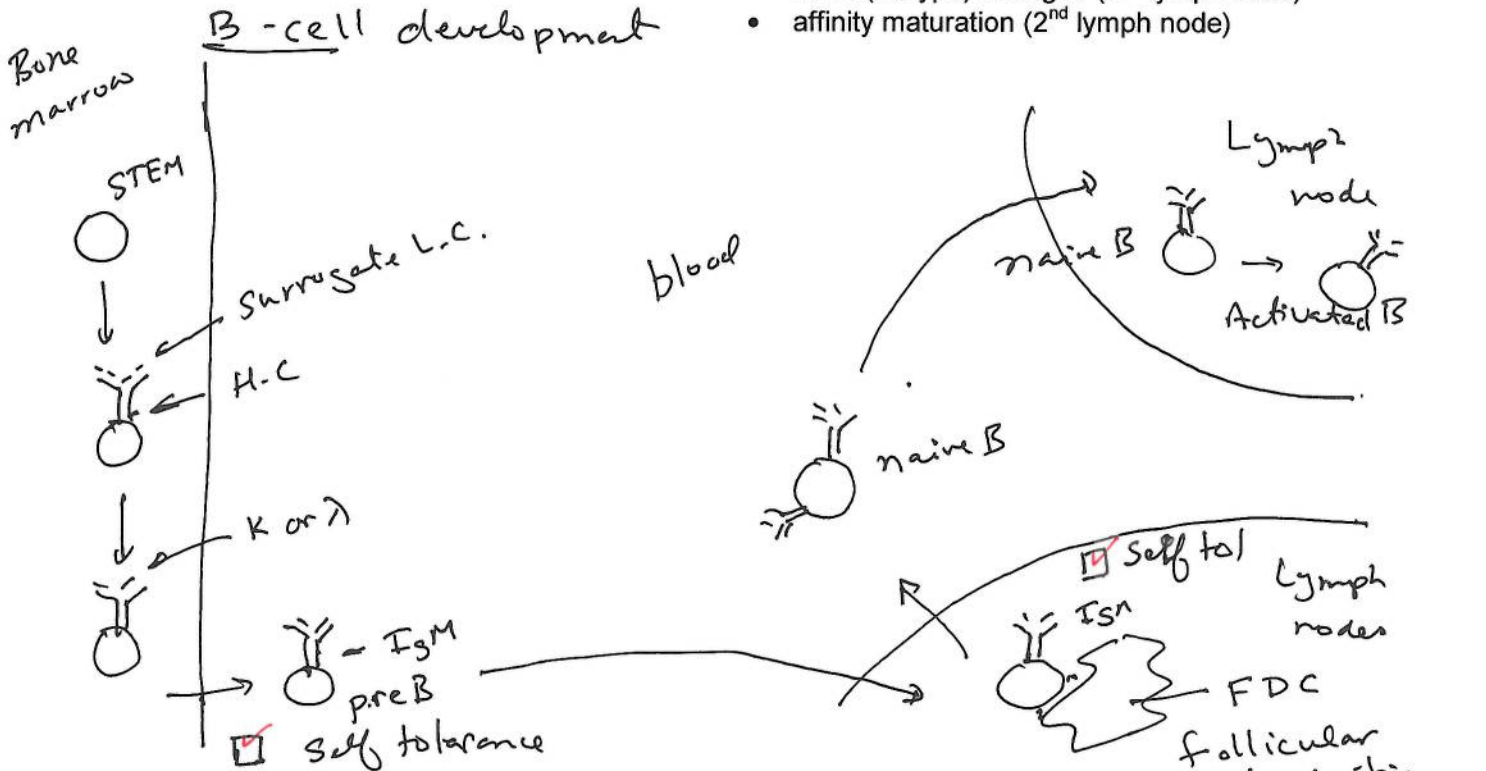 B-cell development
• affinity maturation (2nd lymph node)
Bone
marrow
STEM
Surrogate L.C.
H-C
K or λ
IgM
preB
Self tolerance
blood
naive B
Lymph
node
naive B
Activated B
Self tol
Lymph
nodes
IgM
FDC
follicular